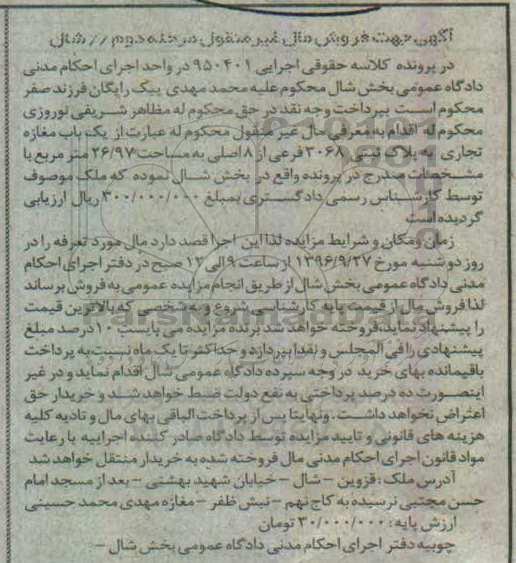 آگهی جهت فروش مال غیر منقول مرحله دوم // شال
در پرونده کلاسه حقوقی اجرایی ۹۵۰۴۰۱ در واحد اجرای احکام مدنی
دادگاه عمومی بخش شال محکوم علیه محمد مهدی بیک رایگان فرزند صفر
محکوم است بپرداخت وجه نقد در حق محکوم له مظاهر شریفی نوروزی
محکوم له اقدام به معرفی مال غیر منقول محکوم له عبارت از یک باب مغازه
تجاری به پلاک ثبتی ۳۰۶۸ فرعی از ۸ اصلی به مساحت ۲۶/۹۷ متر مربع با
مشخصات مندرج در پرونده واقع در بخش شال نموده که ملک موصوف
توسط کارشناس رسمی دادگستری بمبلغ ۳۰۰/۰۰۰/۰۰۰ ریال ارزیابی
گردیده است
زمان ومکان و شرایط مزایده لذا این اجرا قصد دارد مال مورد تعرفه را در
روز دوشنبه مورخ ۱۳۹۶/۹/۲۷ از ساعت ۹ الی ۱۲ صبح در دفتر اجرای احکام
مدنی دادگاه عمومی بخش شال از طریق انجام مزایده عمومی به فروش برساند
لذا فروش مال از قیمت پایه کارشناسی شروع و به شخصی که بالاترین قیمت
را پیشنهاد نماید، فروخته خواهد شد برنده مزایده می بایست ۱۰ درصد مبلغ
پیشنهادی را فی المجلس و نقدا بپردازد و حداکثر تا یک ماه نسبت به پرداخت
باقیمانده بهای خرید در وجه سپرده دادگاه عمومی شال اقدام نماید و در غیر
اینصورت ده درصد پرداختی به نفع دولت ضبط خواهد شد و خریدار حق
اعتراض نخواهد داشت. ونهایتا پس از پرداخت الباقی بهای مال و تادیه کلیه
هزینه های قانونی و تایید مزایده توسط دادگاه صادر کننده اجراییه با رعایت
مواد قانون اجرای احکام مدنی مال فروخته شده به خریدار منتقل خواهد شد
آدرس ملک: قزوین – شال – خیابان شهید بهشتی – بعد از مسجد امام
حسن مجتبی نرسیده به کاج نهم – نبش ظفر – مغازه مهدی محمد حسینی
ارزش پایه: ۳۰/۰۰۰/۰۰۰ تومان
چوبیه دفتر اجرای احکام مدنی دادگاه عمومی بخش شال –